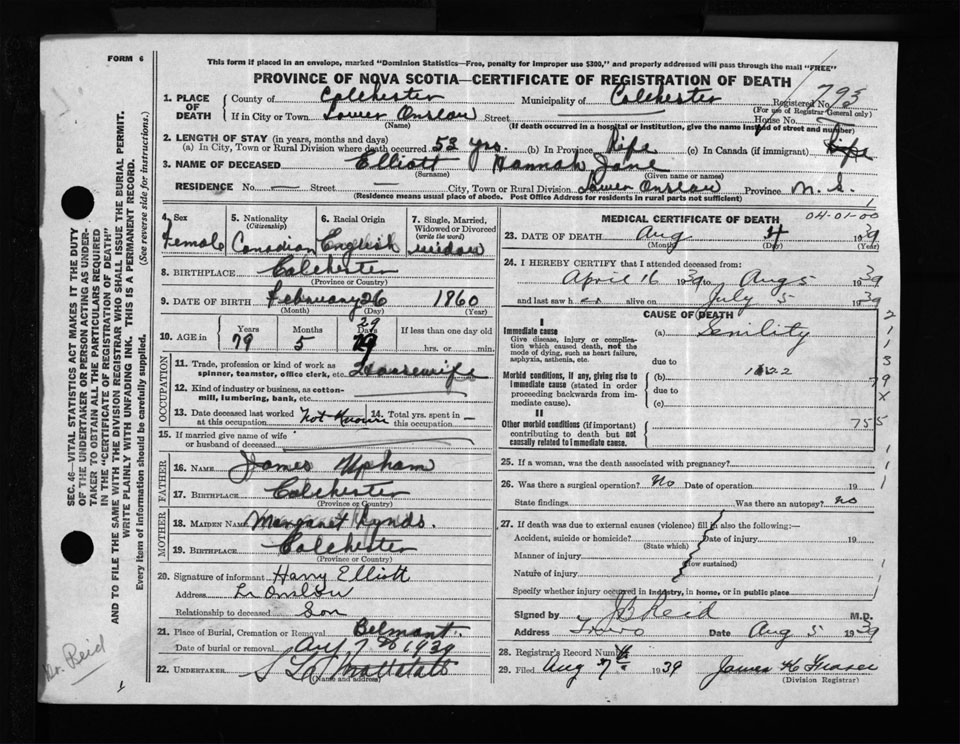 FORM 6
This form if placed in an envelope, marked "Dominion Statistics—Free, penalty for improper use $300," and properly addressed will pass through the mail "FREE"
PROVINCE OF NOVA SCOTIA—CERTIFICATE OF REGISTRATION OF DEATH
1. PLACE OF DEATH
County of Colchester Municipality of Colchester Registered No. 793
(For use of Registrar General only)
If in City or Town Lower Onslow Street House No.
(Name) (If death occurred in a hospital or institution, give the name instead of street and number)
2. LENGTH OF STAY (in years, months and days)
(a) In City, Town or Rural Division where death occurred 53 yrs. (b) In Province Life (c) In Canada (if immigrant) Life
3. NAME OF DECEASED Elliott Hannah Jane
(Surname) (Given name or names)
RESIDENCE No. — Street — City, Town or Rural Division Lower Onslow Province N. S.
(Residence means usual place of abode. Post Office Address for residents in rural parts not sufficient)
4. Sex Female
5. Nationality (Citizenship) Canadian
6. Racial Origin English
7. Single, Married, Widowed or Divorced (write the word) widow
8. BIRTHPLACE Colchester
(Province or Country)
9. DATE OF BIRTH February 26 1860
(Month) (Day) (Year)
10. AGE in Years 79 Months 5 Days 29 If less than one day old hrs. or min.
OCCUPATION
11. Trade, profession or kind of work as spinner, teamster, office clerk, etc. Housewife
12. Kind of industry or business, as cotton-mill, lumbering, bank, etc.
13. Date deceased last worked at this occupation Not Known 14. Total yrs. spent in this occupation —
15. If married give name of wife or husband of deceased
FATHER
16. NAME James Upham
17. BIRTHPLACE Colchester
(Province or Country)
MOTHER
18. MAIDEN NAME Margaret Lynds.
19. BIRTHPLACE Colchester
(Province or Country)
20. Signature of informant Harry Elliott
Address L. Onslow
Relationship to deceased Son
21. Place of Burial, Cremation or Removal Belmont.
Date of burial or removal 1939
22. UNDERTAKER
(Name and address)
MEDICAL CERTIFICATE OF DEATH
04-01-00
23. DATE OF DEATH Aug 4 1939
(Month) (Day) (Year)
24. I HEREBY CERTIFY that I attended deceased from:
April 16 1939 to Aug 5 1939
and last saw her alive on July 5 1939
CAUSE OF DEATH
I
Immediate cause
Give disease, injury or complication which caused death, not the mode of dying, such as heart failure, asphyxia, asthenia, etc.
(a) Senility
due to
Morbid conditions, if any, giving rise to immediate cause (stated in order proceeding backwards from immediate cause).
(b)
due to
(c)
II
Other morbid conditions (if important) contributing to death but not causally related to immediate cause.
25. If a woman, was the death associated with pregnancy?
26. Was there a surgical operation? No Date of operation 19
State findings Was there an autopsy? no
27. If death was due to external causes (violence) fill in also the following:—
Accident, suicide or homicide? Date of injury 19
(State which)
Manner of injury
(How sustained)
Nature of injury
Specify whether injury occurred in industry, in home, or in public place
Signed by J B Reid M.D.
Address Truro Date Aug 5 1939
28. Registrar's Record Number
29. Filed Aug 7 1939 James K Fraser
(Division Registrar)
SEC. 46—VITAL STATISTICS ACT MAKES IT THE DUTY OF THE UNDERTAKER OR PERSON ACTING AS UNDERTAKER TO OBTAIN ALL THE PARTICULARS REQUIRED IN THE "CERTIFICATE OF REGISTRATION OF DEATH" AND TO FILE THE SAME WITH THE DIVISION REGISTRAR WHO SHALL ISSUE THE BURIAL PERMIT.
WRITE PLAINLY WITH UNFADING INK. THIS IS A PERMANENT RECORD.
Every item of information should be carefully supplied. (See reverse side for instructions.)
Dr. Reid